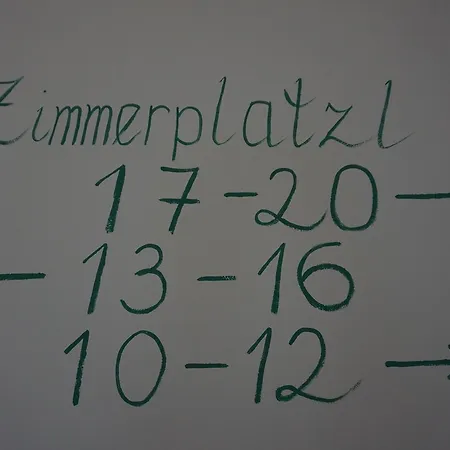 Zimmerplatzl
17-20 —
— 13-16
10-12 —